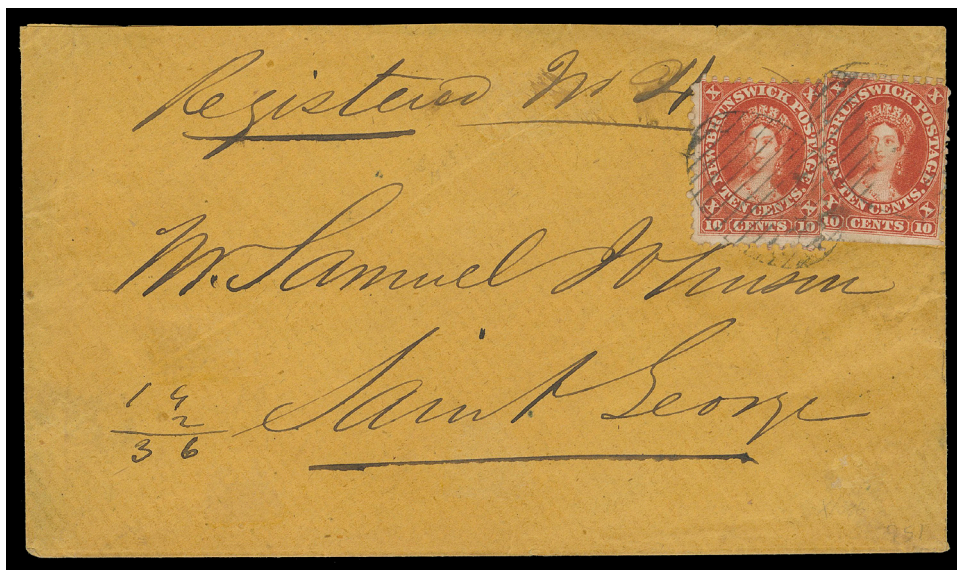 Registered No 4
X NEW-BRUNSWICK POSTAGE. X
X TEN CENTS. X
10 CENTS 10
X NEW-BRUNSWICK POSTAGE. X
X TEN CENTS. X
10 CENTS 10
Mr. Samuel Johnson
Saint George
3 6